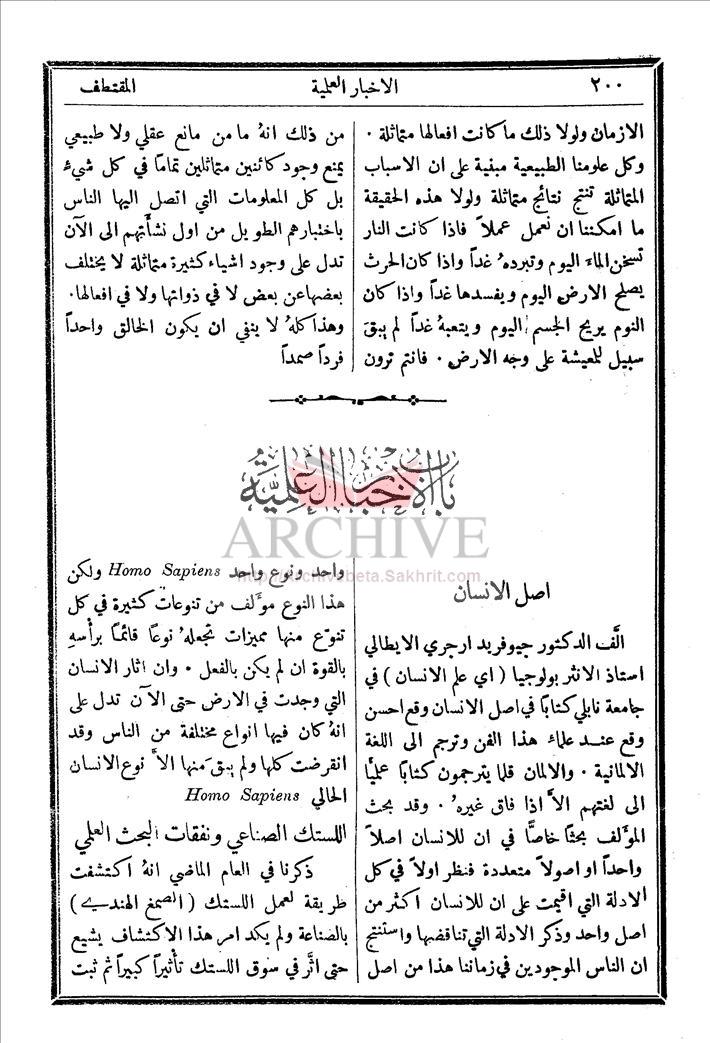 ٢٠٠
الاخبار العلمية
المقتطف
الازمان ولولا ذلك ما كانت افعالها متماثلة ٠
وكل علومنا الطبيعية مبنية على ان الاسباب
المتماثلة تنتج نتائج متماثلة ولولا هذه الحقيقة
ما امكننا ان نعمل عملاً فاذا كانت النار
تسخن الماء اليوم وتبرده غداً واذا كان الحرث
يصلح الارض اليوم ويفسدها غداً واذا كان
النوم يريح الجسم اليوم ويتعبهُ غداً لم يبقَ
سبيل للمعيشة على وجه الارض ٠ فانتم ترون
من ذلك انهُ ما من مانع عقلي ولا طبيعي
يمنع وجود كائنين متماثلين تماماً في كل شيء
بل كل المعلومات التي اتصل اليها الناس
باختبارهم الطويل من اول نشأتهم الى الآن
تدل على وجود اشياء كثيرة متماثلة لا يختلف
بعضها عن بعض لا في ذواتها ولا في افعالها٠
وهذا كلهُ لا ينفي ان يكون الخالق واحداً
فرداً صمداً
باب الاخبار العلمية
ARCHIVE
http://Archivebeta.Sakhrit.com
اصل الانسان
الَّف الدكتور جيوفريد ارجري الايطالي
استاذ الانثربولوجيا ( اي علم الانسان ) في
جامعة نابلي كتاباً في اصل الانسان وقع احسن
وقع عند علماء هذا الفن وترجم الى اللغة
الالمانية ٠ والالمان قلما يترجمون كتاباً علميًّا
الى لغتهم الاَّ اذا فاق غيرهُ ٠ وقد بحث
المؤلف بحثاً خاصًّا في ان للانسان اصلاً
واحداً او اصولاً متعددة فنظر اولاً في كل
الادلة التي اقيمت على ان للانسان اكثر من
اصل واحد وذكر الادلة التي تناقضها واستنتج
ان الناس الموجودين في زماننا هذا من اصل
واحد ونوع واحد Homo Sapiens ولكن
هذا النوع مؤلف من تنوعات كثيرة في كل
تنوّع منها مميزات تجعلهُ نوعاً قائماً برأسهِ
بالقوة ان لم يكن بالفعل ٠ وان اثار الانسان
التي وجدت في الارض حتى الآن تدل على
انهُ كان فيها انواع مختلفة من الناس وقد
انقرضت كلها ولم يبقَ منها الاَّ نوع الانسان
الحالي Homo Sapiens
اللستك الصناعي ونفقات البحث العلمي
ذكرنا في العام الماضي انهُ اكتشفت
طريقة لعمل اللستك ( الصمغ الهندي )
بالصناعة ولم يكد امر هذا الاكتشاف يشيع
حتى اثَّر في سوق اللستك تأثيراً كبيراً ثم ثبت